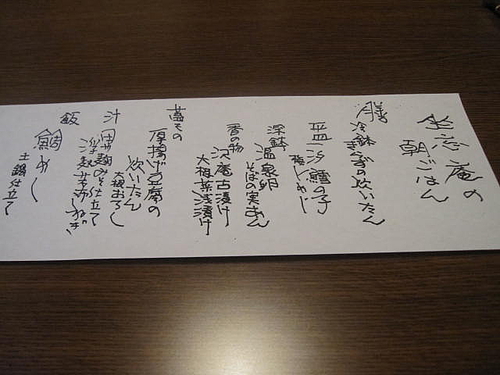 坐忘庵の
朝ごはん
膳 冷鉢
の炊いたん
平皿 鱈の子
深鉢 温泉卵
そばの実あん
香の物 沢庵古漬け
大根葉浅漬け
蓋もの
厚揚げ豆腐の
炊いたん
大根おろし
汁 田舎麹みそ仕立て
浮麩 ねぎ
飯 鯛めし
土鍋仕立て